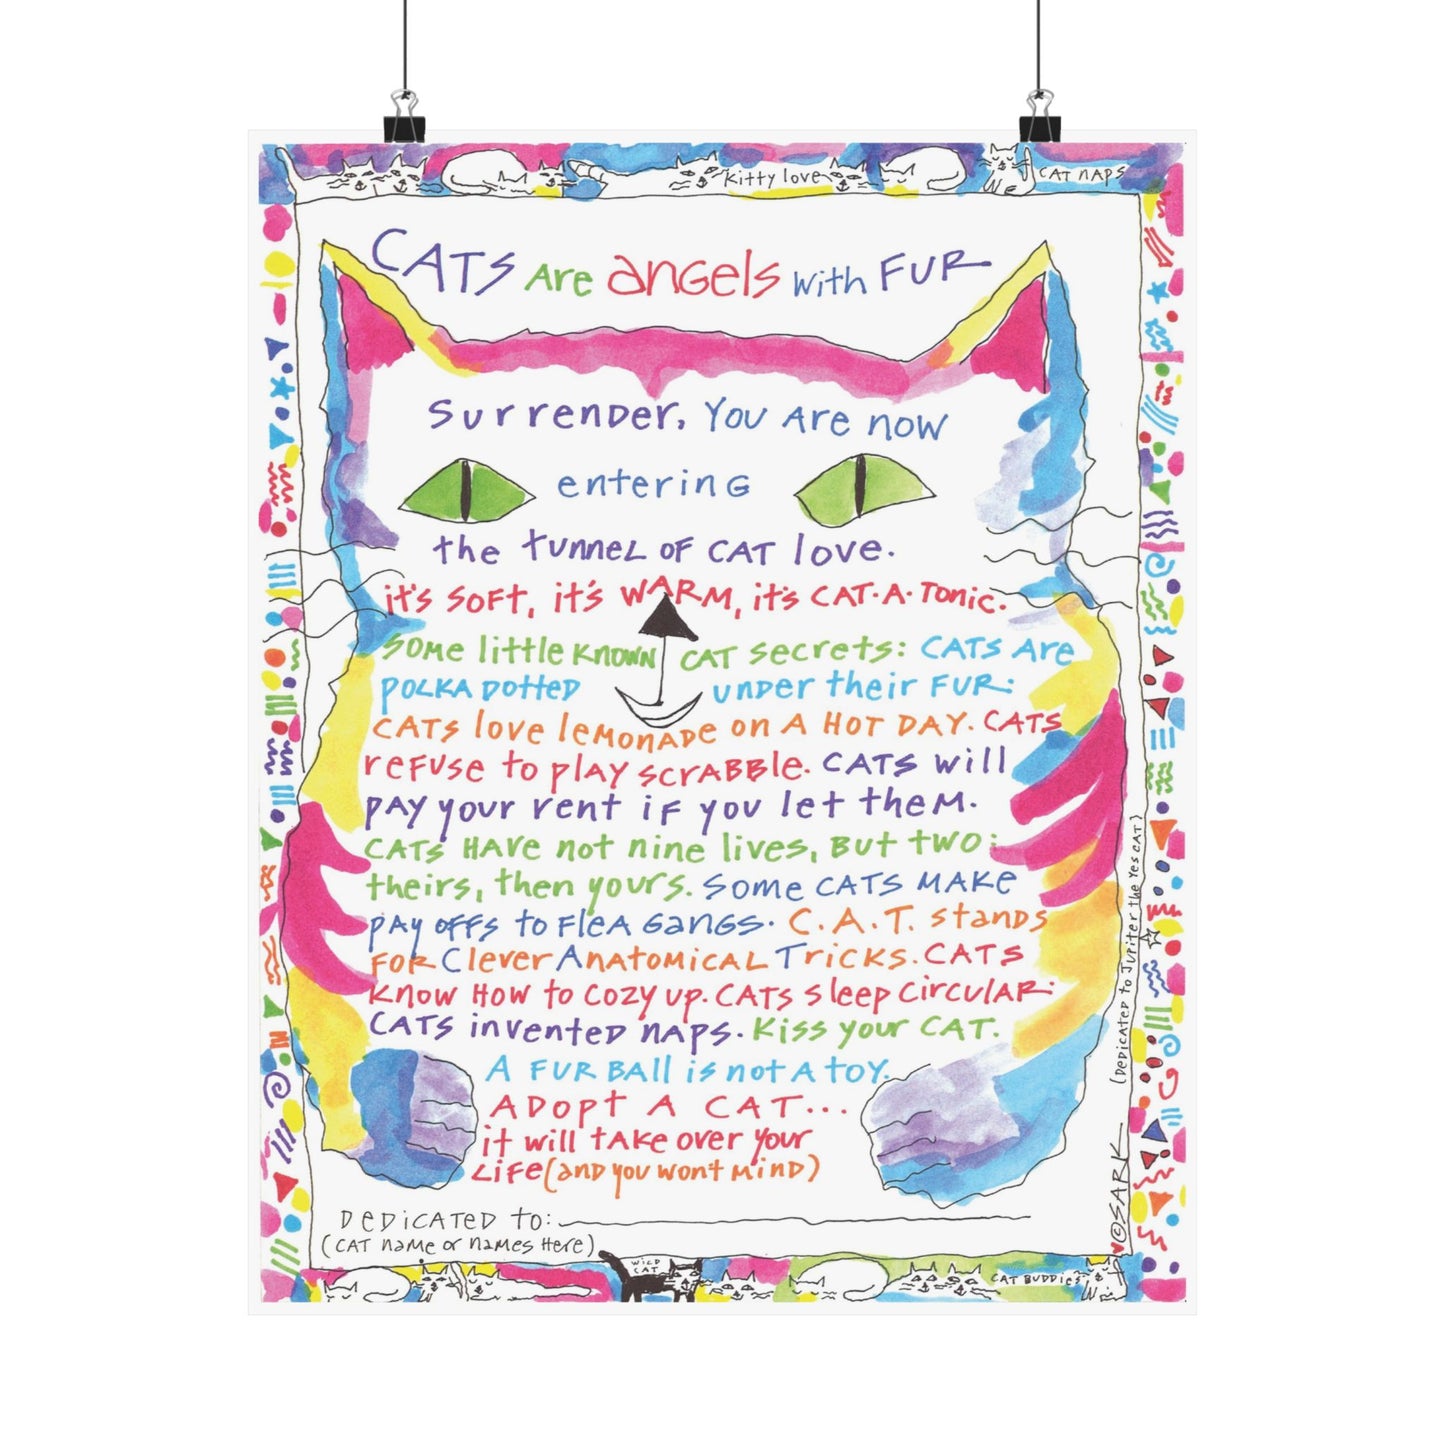 Kitty love
CAT NAPS
CATS Are angels with FUR
Surrender. You Are now
entering
the tunnel of CAT love.
it's soft, it's WARM, it's CAT·A·Tonic.
Some little known CAT secrets: CATS Are
POLKA DOTTED under their FUR:
CATS love lemonade on A HOT DAY. CATS
refuse to play scrabble. CATS will
pay your rent if you let them.
CATS HAVE not nine lives, But two:
theirs, then yours. Some CATS MAKE
pay offs to Flea Gangs. C.A.T. stands
FOR Clever Anatomical Tricks. CATS
know How to cozy up. CATS sleep circular:
CATS invented naps. Kiss your CAT.
A FUR BALL is not A toy.
ADOPT A CAT...
it will take over your
Life (and you won't mind)
DEDICATED to:
(CAT name or names Here)
©SARK
(DEDICATED to Jupiter the Yes CAT)
WILD
CAT
CAT BUDDIES